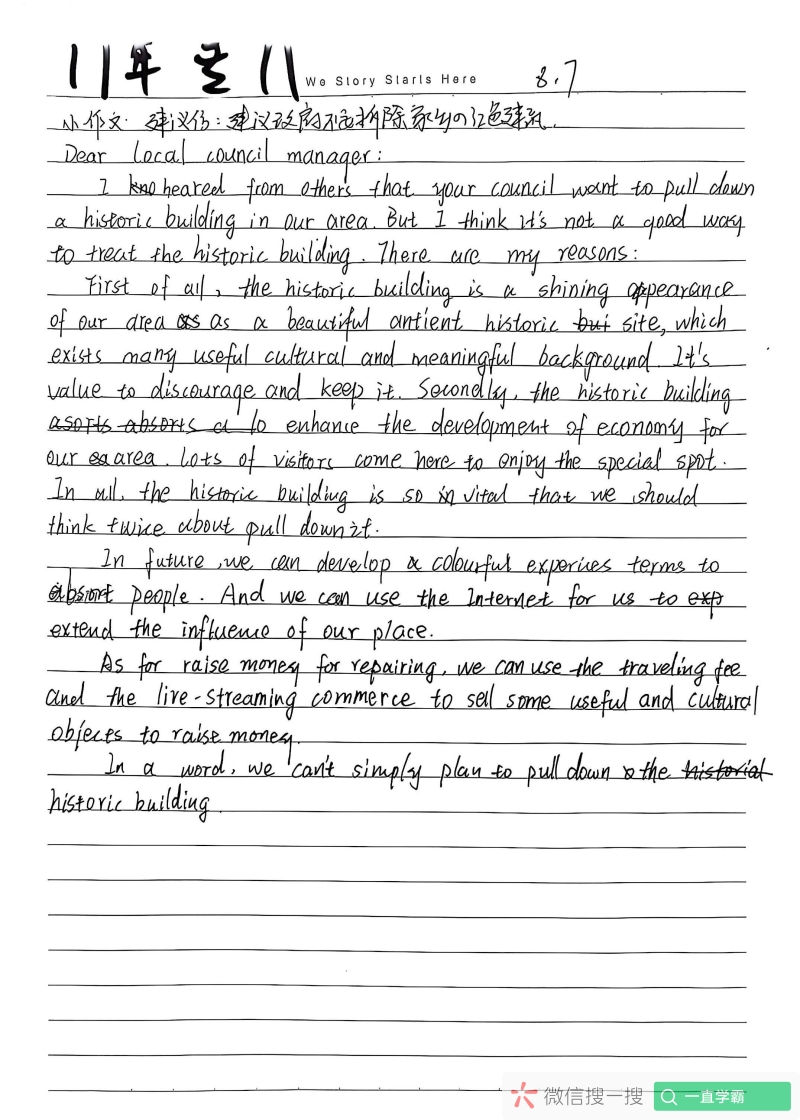 We Story Starts Here
8.7
小作文. 建议信: 建议政府不要拆除家乡的红色建筑.
Dear local council manager:
I heared from others that your council want to pull down
a historic building in our area. But I think it's not a good way
to treat the historic building. There are my reasons:
First of all, the historic building is a shining appearance
of our area as a beautiful antient historic site, which
exists many useful cultural and meaningful background. It's
value to discourage and keep it. Secondly, the historic building
to enhance the development of economy for
our area. Lots of visitors come here to enjoy the special spot.
In all, the historic building is so vital that we should
think twice about pull down it.
In future, we can develop a colourful experices terms to
absort people. And we can use the Internet for us to
extend the influence of our place.
As for raise money for repairing, we can use the traveling fee
and the live-streaming commerce to sell some useful and cultural
objects to raise money.
In a word, we can't simply plan to pull down the
historic building.
微信搜一搜
一直学霸